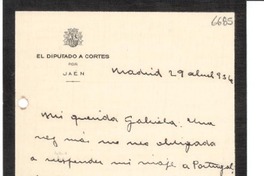 6685
EL DIPUTADO A CORTES
POR
JAEN
Madrid 29 abril 934
Mi querida Gabriela. Una
vez más me veo obligada
a suspender mi viaje a Portugal,